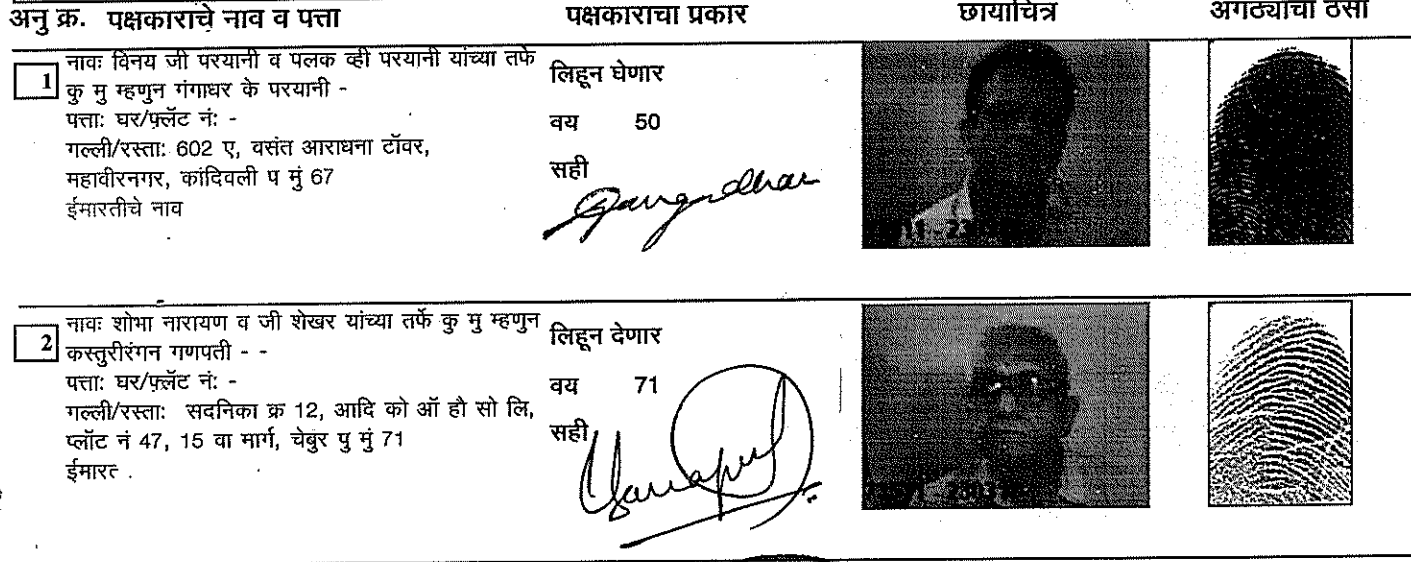 अनु क्र. पक्षकाराचे नाव व पत्ता पक्षकाराचा प्रकार छायाचित्र अंगठ्याचा ठसा
1 नावः विनय जी परयानी व पलक व्ही परयानी यांच्या तर्फे
कु मु म्हणुन गंगाधर के परयानी -
पत्ताः घर/फ्लॅट नंः -
गल्ली/रस्ताः 602 ए, वसंत आराधना टॉवर,
महावीरनगर, कांदिवली प मुं 67
ईमारतीचे नाव
लिहून घेणार
वय 50
सही
Gangadhar
2 नावः शोभा नारायण व जी शेखर यांच्या तर्फे कु मु म्हणुन
कस्तुरीरंगन गणपती - -
पत्ताः घर/फ्लॅट नंः -
गल्ली/रस्ताः सदनिका क्र 12, आदि को ऑ हौ सो लि,
प्लॉट नं 47, 15 वा मार्ग, चेबुर पु मुं 71
ईमारत
लिहून देणार
वय 71
सही